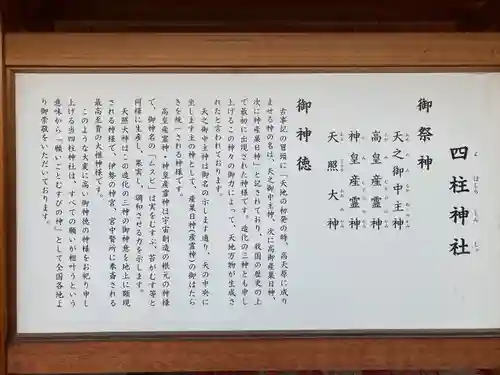 四柱神社
よはしらじんじゃ
御祭神
天之御中主神
高皇産霊神
神皇産霊神
天照大神
御神徳
古事記の冒頭に「天地の初発の時、高天原に成り
ませる神の名は、天之御中主神、次に高御産巣日神、
次に神産巣日神」と記されており、我国の歴史の上
で最初に出現された神様です。造化の三神とも申し
上げるこの神々の御力によって、天地万物が生成さ
れたと言われております。
天之御中主神は御名の示します通り、天の中央に
坐します主の神として、産巣日神(産霊神)の御はたら
きを統一される神様です。
高皇産霊神・神皇産霊神は宇宙創造の根元の神様
で、御神名の「ムスビ」は実をむすぶ、苔がむす等と
同様に生産し、果実し、調和させる力を示します。
天照大神はこの造化の三神の御神意を地上に顕現
される神様で、伊勢の神宮、宮中賢所に奉斎される
最高至貴の大権神様です。
このような大変に高い御神徳の神様をお祀り申し
上げる当四柱神社は、すべての願いが相叶うという
意味から「願いごとむすびの神」として全国各地よ
り御崇敬をいただいております。